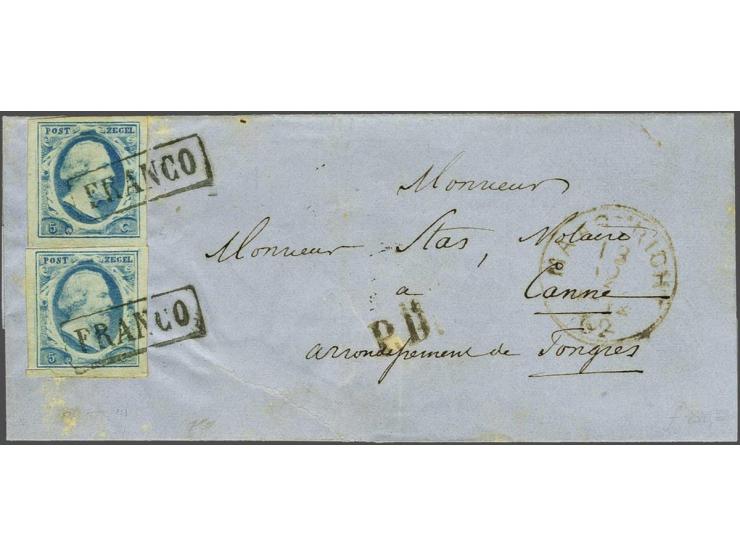 POST ZEGEL
5 C
FRANCO
POST ZEGEL
5
FRANCO
Monsieur
Monsieur Stas, Notaire
a Canne
arrondissement de Tongres
P.D.
MAASTRICHT